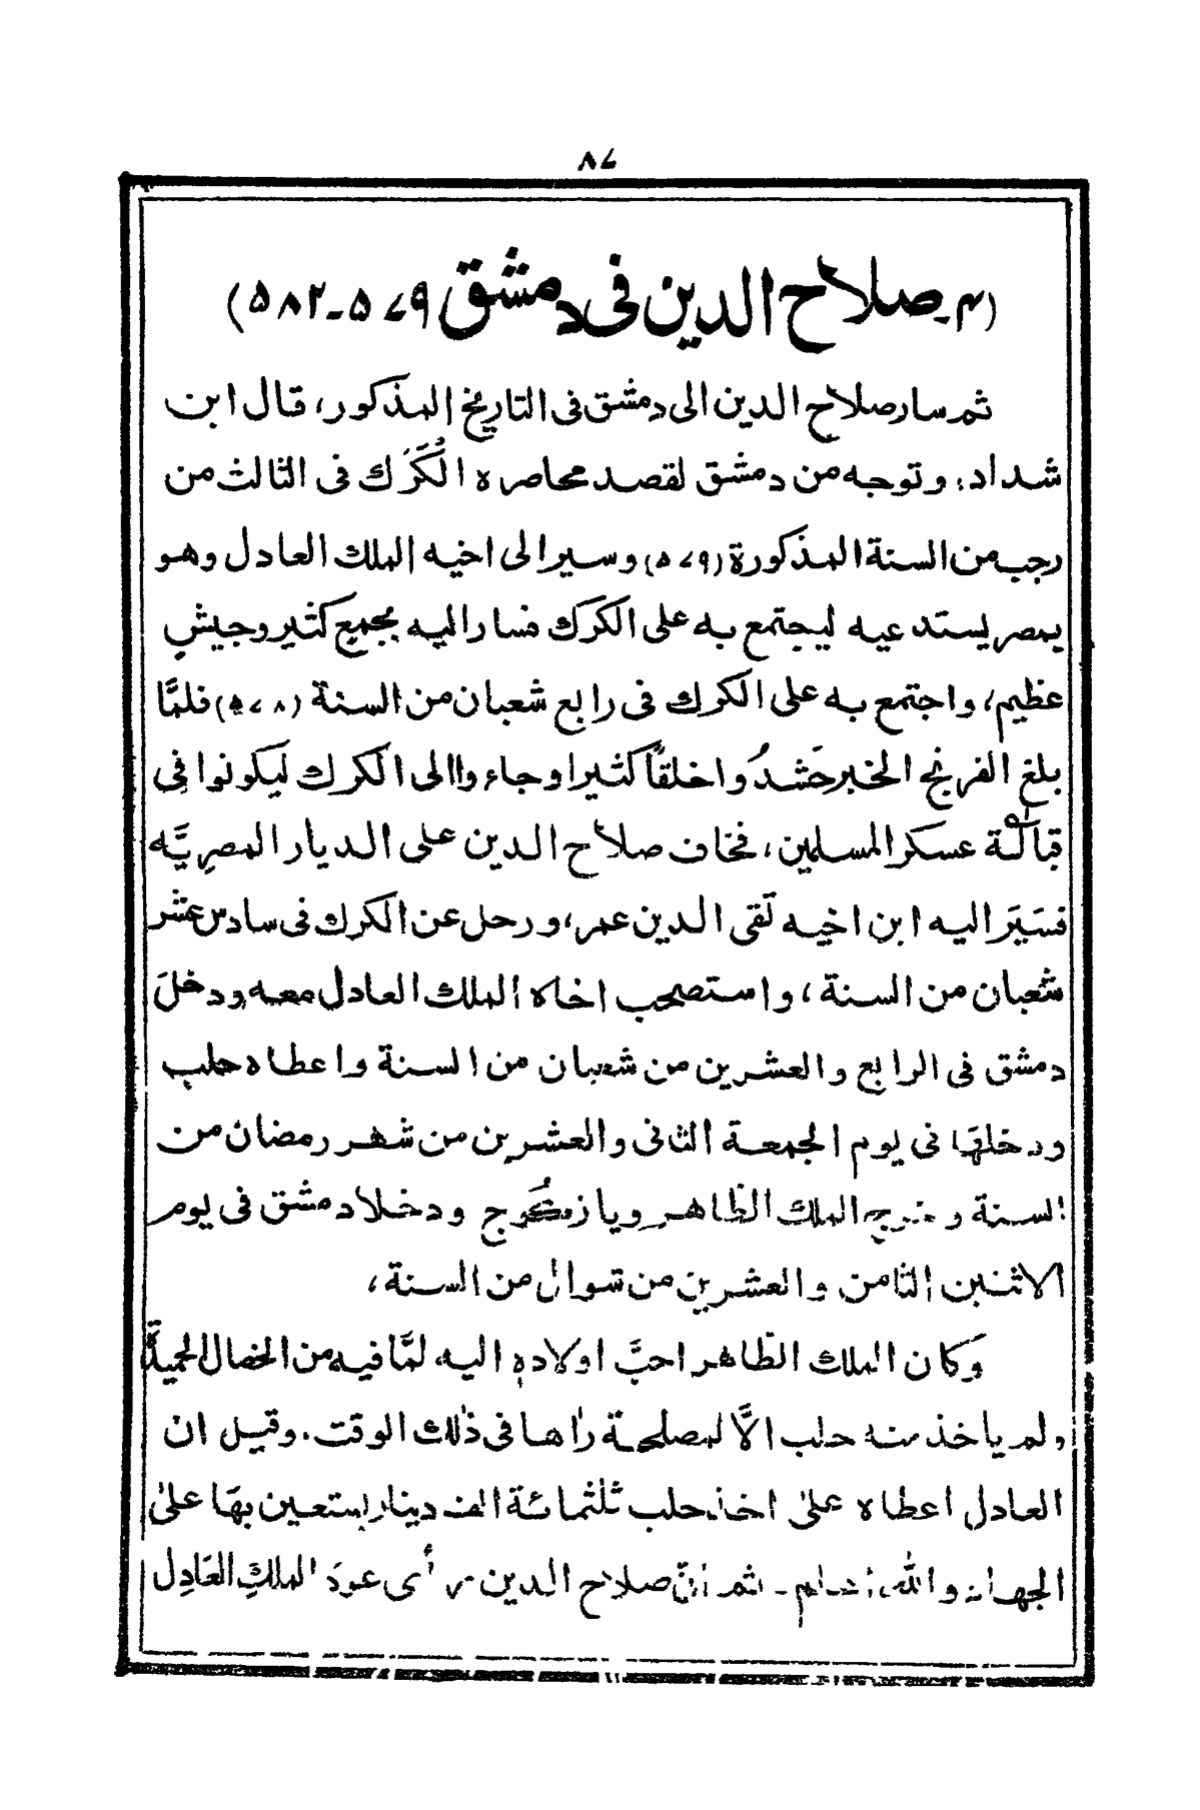 ٨٧
(٤ـ صلاح الدين فى دمشق ٥٧٩ـ٥٨٢)
ثم سار صلاح الدين الى دمشق فى التاريخ المذكور، قال ابن
شداد: وتوجه من دمشق لقصد محاصره الكُرَك فى الثالث من
رجب من السنة المذكورة (٥٧٩) وسير الى اخيه الملك العادل وهو
بمصر يستدعيه ليجتمع به على الكرك فسار اليه بجمع كثير وجيشٍ
عظيم، واجتمع به على الكرك فى رابع شعبان من السنة (٥٧٨) فلمَّا
بلغ الفرنج الخبر حَشدُوا خلقًا كثيرا وجاءوا الى الكرك ليكونوا فِى
قبالة عسكر المسلمين، فخاف صلاح الدين على الديار المصرِيَّه
فسَيَر اليه ابن اخيه تقى الدين عمر، ورحل عن الكرك فى سادس عشر
شعبان من السنة، واستصحب اخاه الملك العادل معه ودخلَ
دمشق فى الرابع والعشرين من شعبان من السنة واعطاه حلب
ودخلها فى يوم الجمعة الثانى والعشرين من شهر رمضان من
السنة وخرج الملك الظاهر ويازكُوج ودخلا دمشق فى يوم
الاثنين الثامن والعشرين من شوال من السنة،
وَكان الملك الظاهر احبَّ اولاده اليه، لمَّا فيه من الخصال الحميدةِ
ولم ياخذ منه حلب الاَّ لمصلحة رأها فى ذٰلك الوقت. وقيل ان
العادل اعطاه علىٰ اخذ حلب ثلٰثمائة الف دينار يستعين بهَا علىٰ
الجهاد والله اعلم ـ ثم انّ صلاح الدين رأى عودَ الملكِ العَادِل